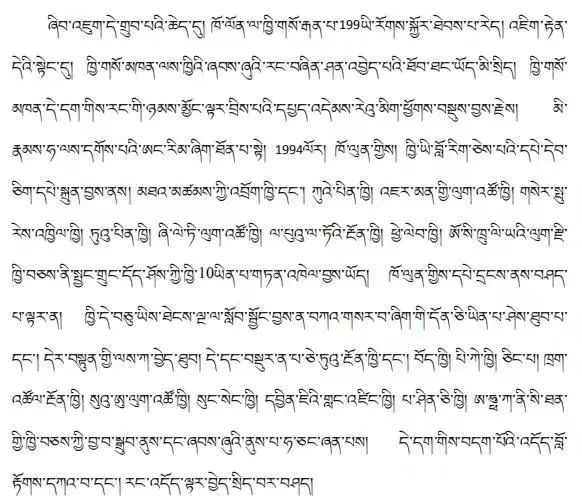 ཞིབ་འཇུག་དེ་གྲུབ་པའི་ཆེད་དུ། ཁོ་ལོན་ལ་ཁྱི་གསོ་རྒན་པ་199ཡི་རོགས་སྐྱོར་ཐེབས་པ་རེད། འཇིག་རྟེན་
དེའི་སྟེང་དུ། ཁྱི་གསོ་མཁན་ལས་ཁྱིའི་ཞབས་ཞུའི་རང་བཞིན་ཤན་འབྱེད་པའི་ཐོབ་ཐང་ཡོད་མི་སྲིད། ཁྱི་གསོ་
མཁན་དེ་དག་གིས་རང་གི་ཉམས་མྱོང་ལྟར་བྲིས་པའི་དཔྱད་འདེམས་རེའུ་མིག་ཕྱོགས་བསྡུས་བྱས་རྗེས། མི་
རྣམས་ཧ་ལས་དགོས་པའི་ཨང་རིམ་ཞིག་ཐོན་པ་སྟེ། 1994ལོར། ཁོ་ལུན་གྱིས། ཁྱི་ཡི་བློ་རིག་ཅེས་པའི་དཔེ་དེབ་
ཅིག་དཔེ་སྐྲུན་བྱས་ནས། མཐའ་མཚམས་ཀྱི་འབྲོག་ཁྱི་དང་། ཀུའེ་པིན་ཁྱི། འཇར་མན་གྱི་ལུག་འཚོ་ཁྱི། གསེར་སྤུ་
རེས་འཁྱིལ་ཁྱི། ཏུའུ་པིན་ཁྱི། ཞི་ལེ་ཏི་ལུག་འཚོ་ཁྱི། ལ་པུའུ་ལ་ཏོའི་རྔོན་ཁྱི། ཕྱེ་ལེབ་ཁྱི། ཨོ་སི་ཁྲུ་ལི་ཡའི་ལུག་རྫི་
ཁྱི་བཅས་ནི་སྤྱང་གྲུང་དོད་ཤོས་ཀྱི་ཁྱི་10ཡིན་པ་གཏན་འཁེལ་བྱས་ཡོད། ཁོ་ལུན་གྱིས་དཔེ་དྲངས་ནས་བཤད་
པ་ལྟར་ན། ཁྱི་དེ་བཅུ་ཡིས་ཐེངས་ལྔ་ལ་སློབ་སྦྱོང་བྱས་ན་བཀའ་གསར་བ་ཞིག་གི་དོན་ཅི་ཡིན་པ་ཤེས་ཐུབ་པ་
དང་། དེར་བསྟུན་གྱི་ལས་ཀ་བྱེད་ཐུབ། དེ་དང་བསྡུར་ན་པ་ཅེ་ཏུའུ་རྔོན་ཁྱི་དང་། བོད་ཁྱི། པི་ཀེ་ཁྱི། ཅིང་པ། ཁྲག་
འཚོལ་རྔོན་ཁྱི། སུའུ་ཨུ་ལུག་འཚོ་ཁྱི། སུང་སེང་ཁྱི། དབྱིན་ཇིའི་གླང་འཛིང་ཁྱི། པ་ཤིན་ཅི་ཁྱི། ཨ་ཧྥུ་ཀ་ནི་སི་ཐན་
གྱི་ཁྱི་བཅས་ཀྱི་བྱ་བ་སྒྲུབ་ནུས་དང་ཞབས་ཞུའི་ནུས་པ་ཧ་ཅང་ཞན་པས། དེ་དག་གིས་བདག་པོའི་འདོད་བློ་
རྟོགས་དཀའ་བ་དང་། རང་འདོད་ལྟར་བྱེད་སྲིད་བར་བཤད།